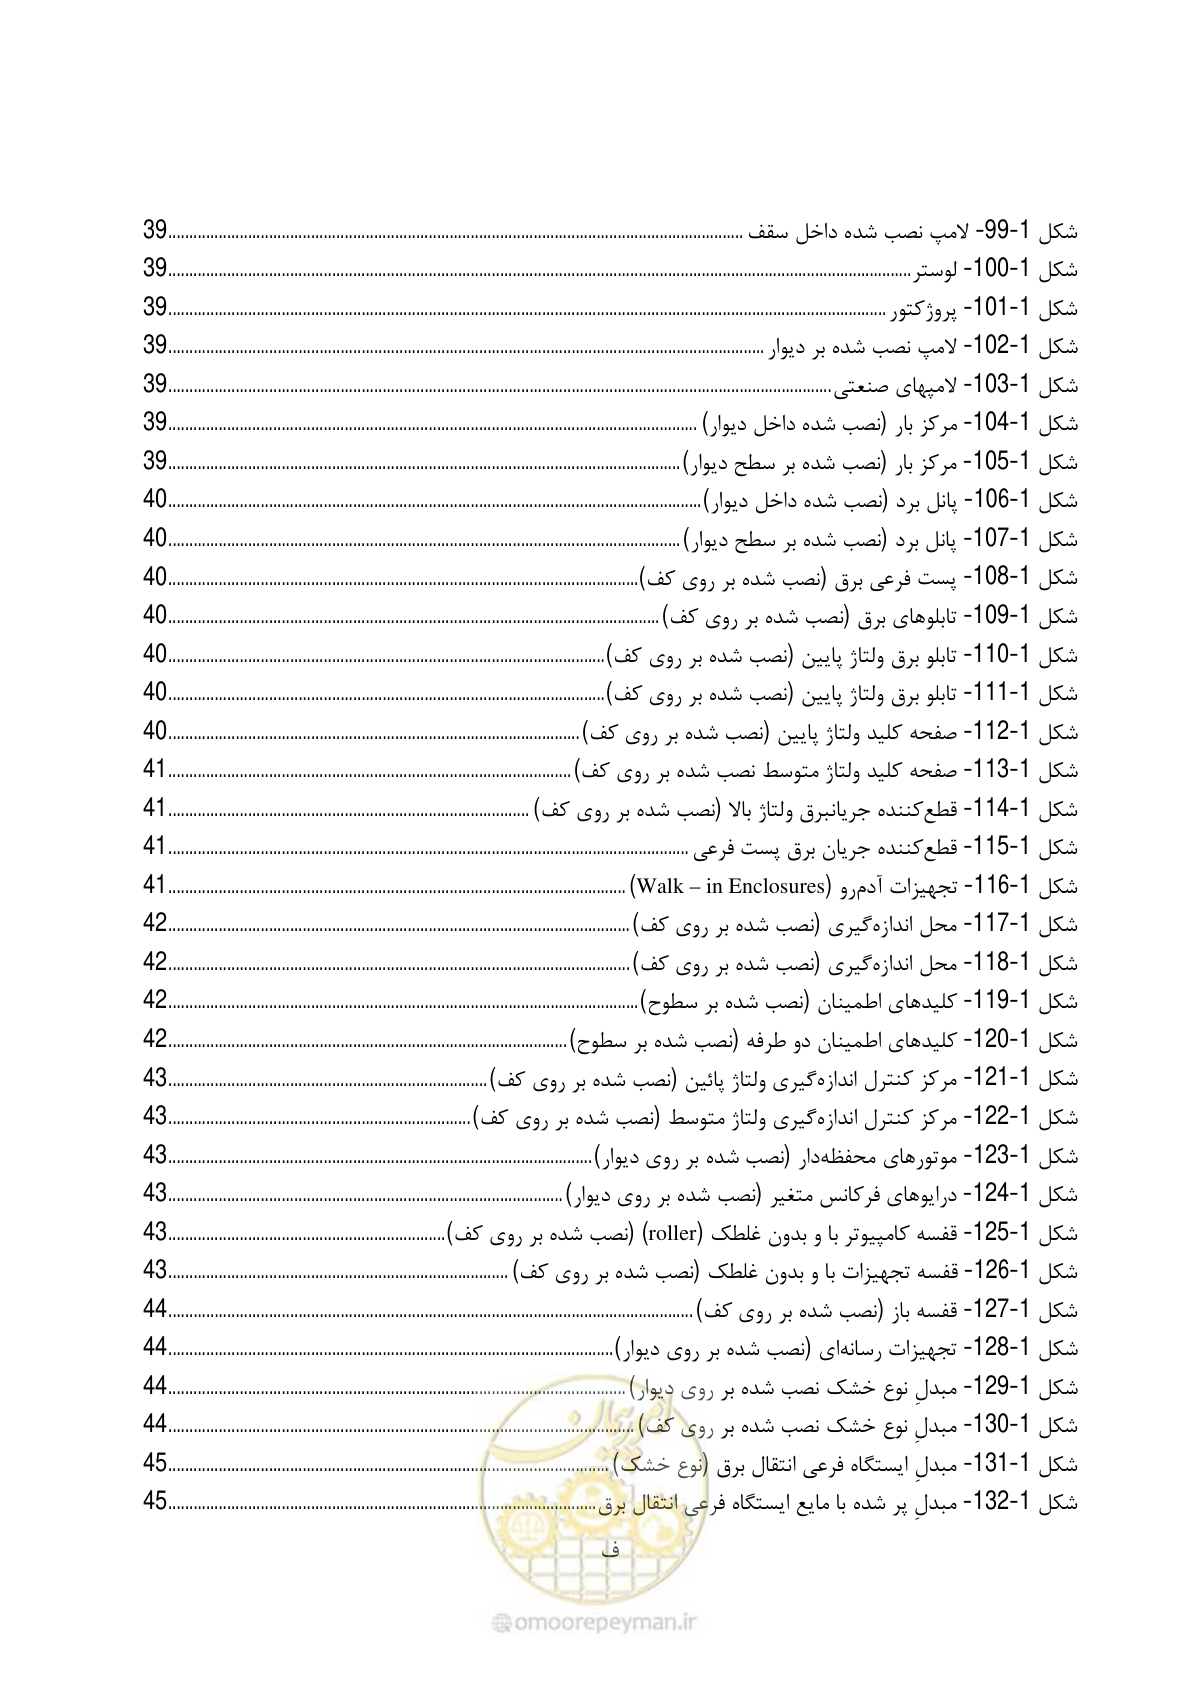 شکل 1-99- لامپ نصب شده داخل سقف ........ 39
شکل 1-100- لوستر ........ 39
شکل 1-101- پروژکتور ........ 39
شکل 1-102- لامپ نصب شده بر دیوار ........ 39
شکل 1-103- لامپهای صنعتی ........ 39
شکل 1-104- مرکز بار (نصب شده داخل دیوار) ........ 39
شکل 1-105- مرکز بار (نصب شده بر سطح دیوار) ........ 39
شکل 1-106- پانل برد (نصب شده داخل دیوار) ........ 40
شکل 1-107- پانل برد (نصب شده بر سطح دیوار) ........ 40
شکل 1-108- پست فرعی برق (نصب شده بر روی کف) ........ 40
شکل 1-109- تابلوهای برق (نصب شده بر روی کف) ........ 40
شکل 1-110- تابلو برق ولتاژ پایین (نصب شده بر روی کف) ........ 40
شکل 1-111- تابلو برق ولتاژ پایین (نصب شده بر روی کف) ........ 40
شکل 1-112- صفحه کلید ولتاژ پایین (نصب شده بر روی کف) ........ 40
شکل 1-113- صفحه کلید ولتاژ متوسط نصب شده بر روی کف) ........ 41
شکل 1-114- قطع‌کننده جریانبرق ولتاژ بالا (نصب شده بر روی کف) ........ 41
شکل 1-115- قطع‌کننده جریان برق پست فرعی ........ 41
شکل 1-116- تجهیزات آدم‌رو (Walk – in Enclosures) ........ 41
شکل 1-117- محل اندازه‌گیری (نصب شده بر روی کف) ........ 42
شکل 1-118- محل اندازه‌گیری (نصب شده بر روی کف) ........ 42
شکل 1-119- کلیدهای اطمینان (نصب شده بر سطوح) ........ 42
شکل 1-120- کلیدهای اطمینان دو طرفه (نصب شده بر سطوح) ........ 42
شکل 1-121- مرکز کنترل اندازه‌گیری ولتاژ پائین (نصب شده بر روی کف) ........ 43
شکل 1-122- مرکز کنترل اندازه‌گیری ولتاژ متوسط (نصب شده بر روی کف) ........ 43
شکل 1-123- موتورهای محفظه‌دار (نصب شده بر روی دیوار) ........ 43
شکل 1-124- درایوهای فرکانس متغیر (نصب شده بر روی دیوار) ........ 43
شکل 1-125- قفسه کامپیوتر با و بدون غلطک (roller) (نصب شده بر روی کف) ........ 43
شکل 1-126- قفسه تجهیزات با و بدون غلطک (نصب شده بر روی کف) ........ 43
شکل 1-127- قفسه باز (نصب شده بر روی کف) ........ 44
شکل 1-128- تجهیزات رسانه‌ای (نصب شده بر روی دیوار) ........ 44
شکل 1-129- مبدلِ نوع خشک نصب شده بر روی دیوار) ........ 44
شکل 1-130- مبدلِ نوع خشک نصب شده بر روی کف) ........ 44
شکل 1-131- مبدلِ ایستگاه فرعی انتقال برق (نوع خشک) ........ 45
شکل 1-132- مبدلِ پر شده با مایع ایستگاه فرعی انتقال برق ........ 45
امور پیمان
ف
@omoorepeyman.ir